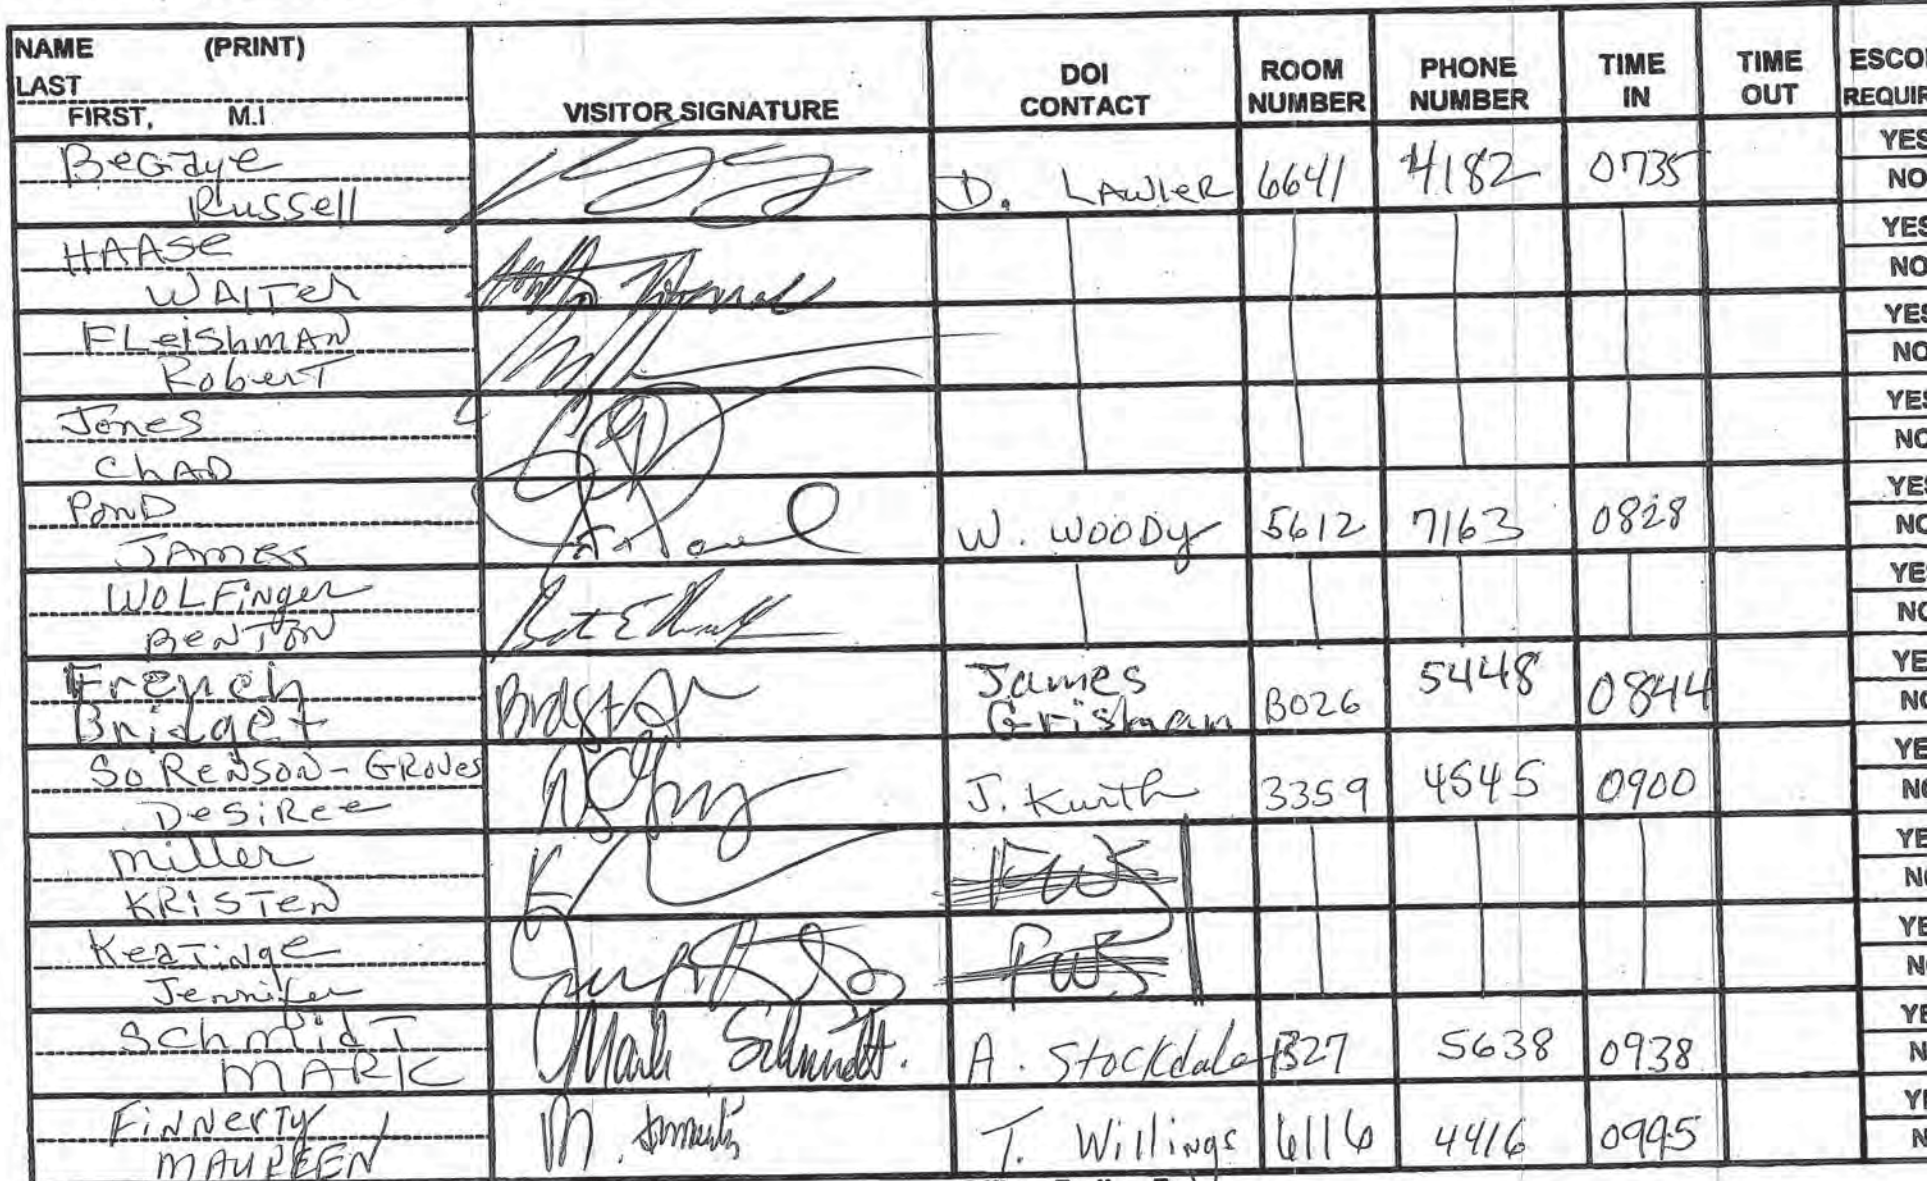 NAME (PRINT)
LAST
FIRST, M.I
VISITOR SIGNATURE
DOI
CONTACT
ROOM
NUMBER
PHONE
NUMBER
TIME
IN
TIME
OUT
ESCO
REQUIR
BeGaye
Russell
D. LAWleR 6641 4182 0735
YES
NO
HAASe
WAlTeR
YES
NO
FLeIShmAN
RoberT
YES
NO
Jones
ChAD
YES
NO
PonD
JAmes
W. WOODy 5612 7163 0828
YES
NO
WOLFinger
BENTON
YES
NO
French
Bridget
James
Grisham
B026 5448 0844
YE
NO
SoRENSON-GROVes
DeSiRee
J. Kurth 3359 4545 0900
YE
NO
Miller
KRISTEN
FWS
YE
NO
KeaTiNge
Jennifer
FWS
YE
NO
SchmidT
MARK
Mark Schmidt.
A. Stockdale 1327 5638 0938
YE
N
FiNNerTy
MAUREEN
M.
T. Willings 6116 4416 0945
YE
N